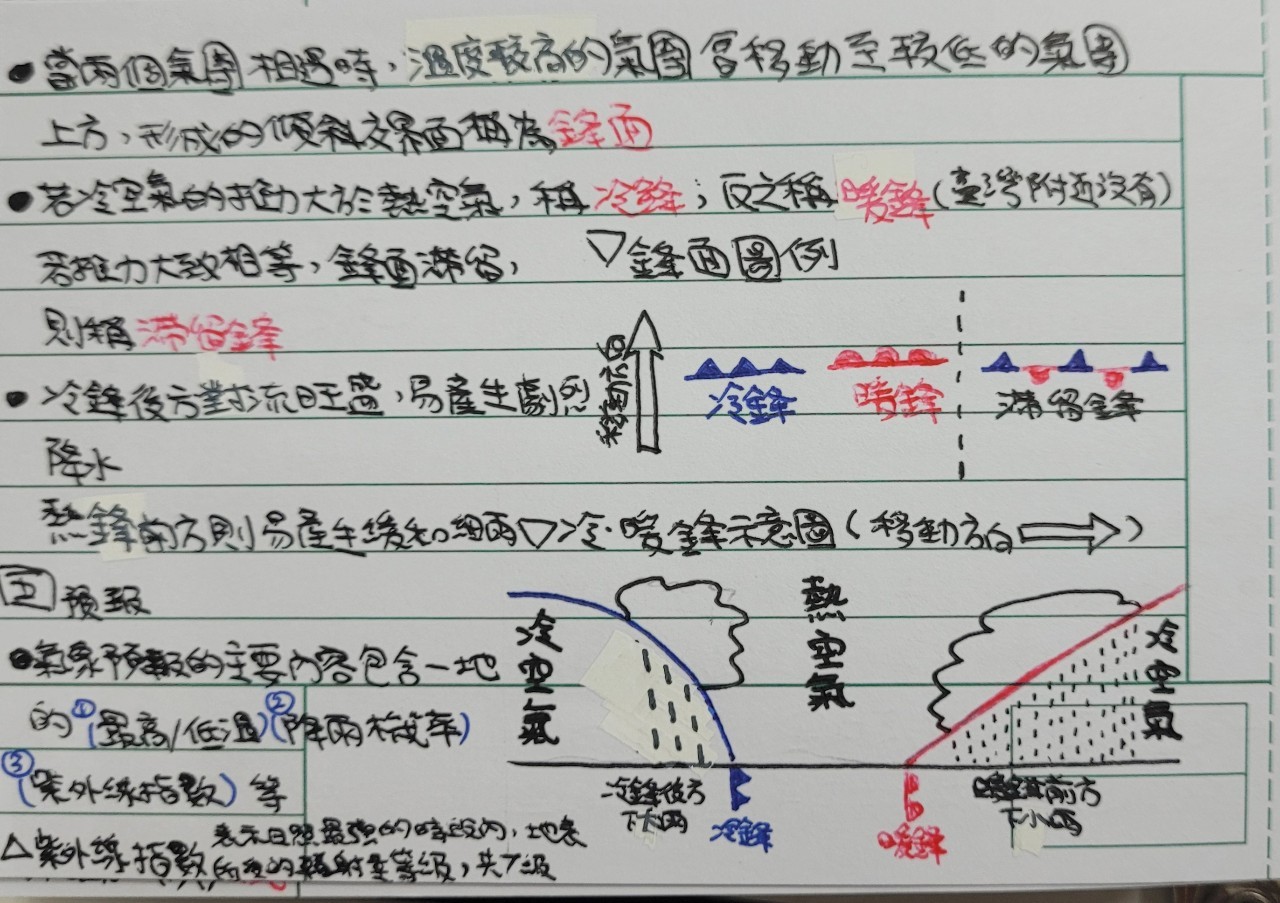 ●當兩個氣團相遇時,溫度較高的氣團會移動至較低的氣團
上方,形成的傾斜交界面稱為鋒面
●若冷空氣的推力大於熱空氣,稱冷鋒;反之稱暖鋒(臺灣附近沒有)
若推力大致相等,鋒面滯留,
則稱滯留鋒
●冷鋒後方對流旺盛,易產生劇烈
降水
熱鋒前方則易產生緩和細雨
▽鋒面圖例
移動方向
冷鋒
暖鋒
滯留鋒
▽冷、暖鋒示意圖(移動方向 )
冷空氣
熱空氣
冷空氣
冷鋒後方
下大雨
冷鋒
暖鋒
暖鋒前方
下小雨
五 預報
●氣象預報的主要內容包含一地
的①(最高/低溫)②(降雨機率)
③(紫外線指數)等
△紫外線指數 表示日照最強的時段內,地表
所受的輻射量等級,共7級